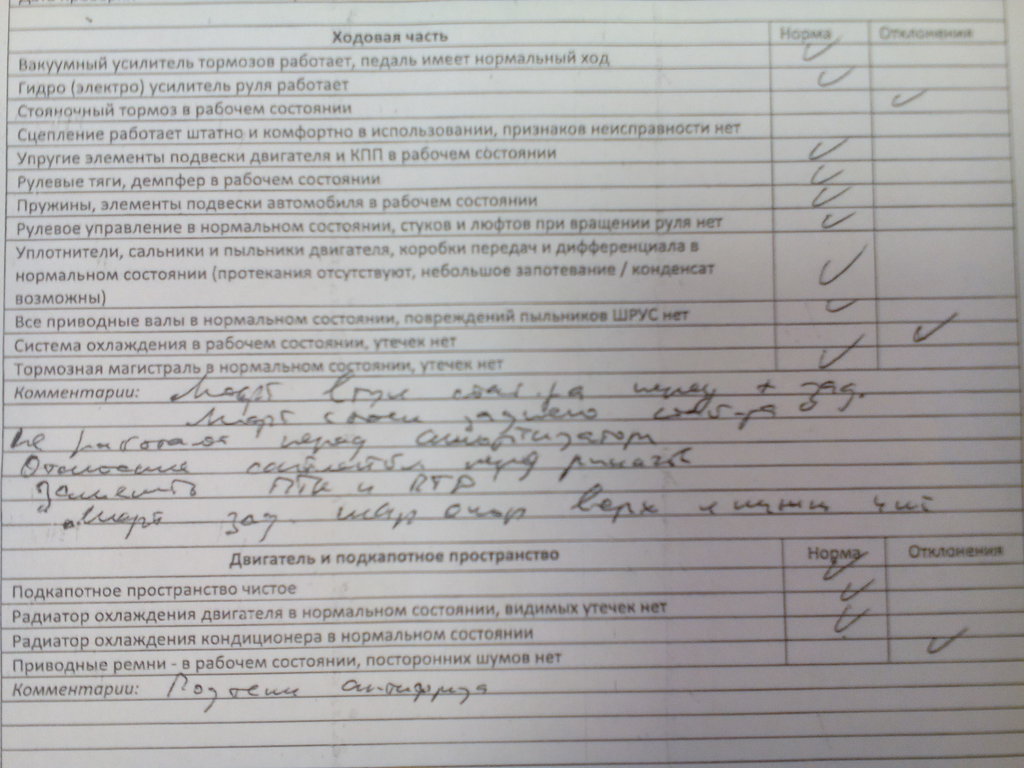 Ходовая часть Норма Отклонения
Вакуумный усилитель тормозов работает, педаль имеет нормальный ход
Гидро (электро) усилитель руля работает
Стояночный тормоз в рабочем состоянии
Сцепление работает штатно и комфортно в использовании, признаков неисправности нет
Упругие элементы подвески двигателя и КПП в рабочем состоянии
Рулевые тяги, демпфер в рабочем состоянии
Пружины, элементы подвески автомобиля в рабочем состоянии
Рулевое управление в нормальном состоянии, стуков и люфтов при вращении руля нет
Уплотнители, сальники и пыльники двигателя, коробки передач и дифференциала в
нормальном состоянии (протекания отсутствуют, небольшое запотевание / конденсат
возможны)
Все приводные валы в нормальном состоянии, повреждений пыльников ШРУС нет
Система охлаждения в рабочем состоянии, утечек нет
Тормозная магистраль в нормальном состоянии, утечек нет
Комментарии: Люфт втул стаб-ра перед + зад.
Люфт стоек заднего стаб-ра
Не работают перед амортизаторы
Отслоение сайлентбл перед рычагов
Заменить ПТК и
Люфт зад. шар опор верх и нижн
Двигатель и подкапотное пространство Норма Отклонения
Подкапотное пространство чистое
Радиатор охлаждения двигателя в нормальном состоянии, видимых утечек нет
Радиатор охлаждения кондиционера в нормальном состоянии
Приводные ремни - в рабочем состоянии, посторонних шумов нет
Комментарии: Подтеки антифриза